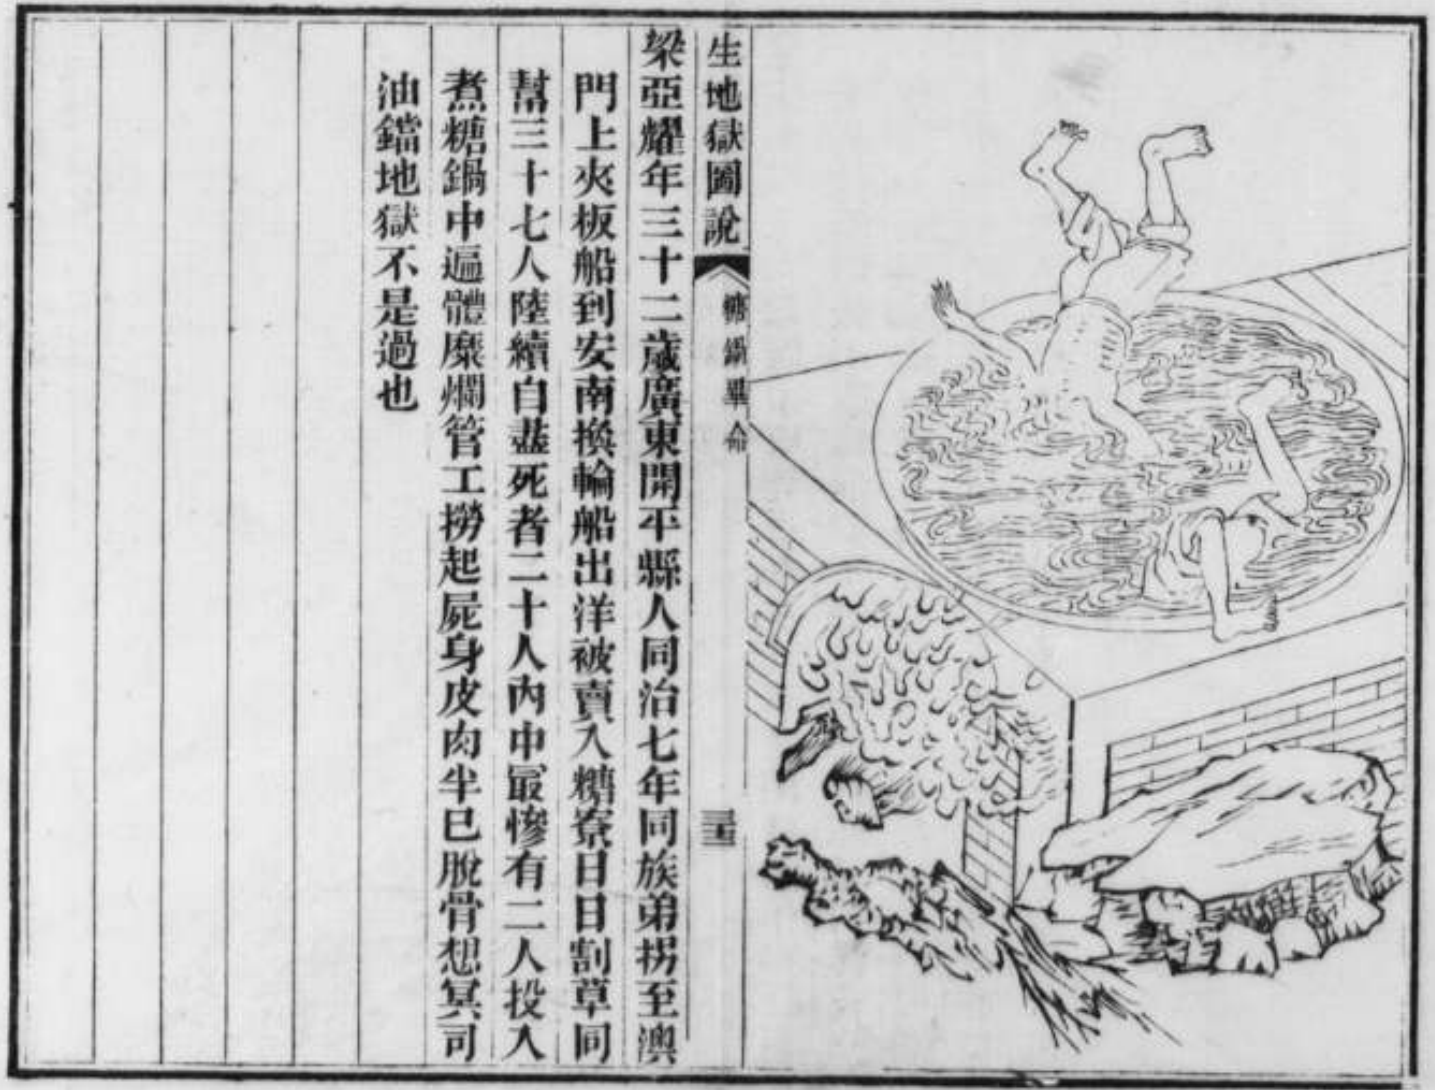 生地獄圖說
糖鍋畢命
三五
梁亞耀年三十二歲廣東開平縣人同治七年同族弟拐至澳
門上夾板船到安南換輪船出洋被賣入糖寮日日割草同
幫三十七人陸續自盡死者二十人內中最慘有二人投入
煮糖鍋中遍體糜爛管工撈起屍身皮肉半已脫骨想冥司
油鐺地獄不是過也